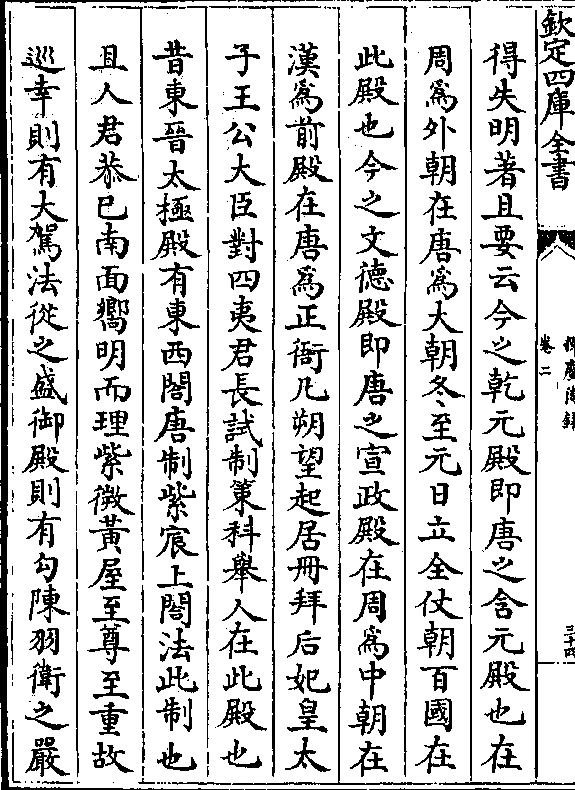 欽定四庫全書
卷二
三十四
得失明著且要云今之乾元殿即唐之含元殿也在
周為外朝在唐為大朝冬至元日立全仗朝百國在
此殿也今之文德殿即唐之宣政殿在周為中朝在
漢為前殿在唐為正衙凡朔望起居冊拜后妃皇太
子王公大臣對四夷君長試制策科舉人在此殿也
昔東晉太極殿有東西閤唐制紫宸上閤法此制也
且人君恭已南面嚮明而理紫微黃屋至尊至重故
巡幸則有大駕法從之盛御殿則有勾陳羽衛之嚴